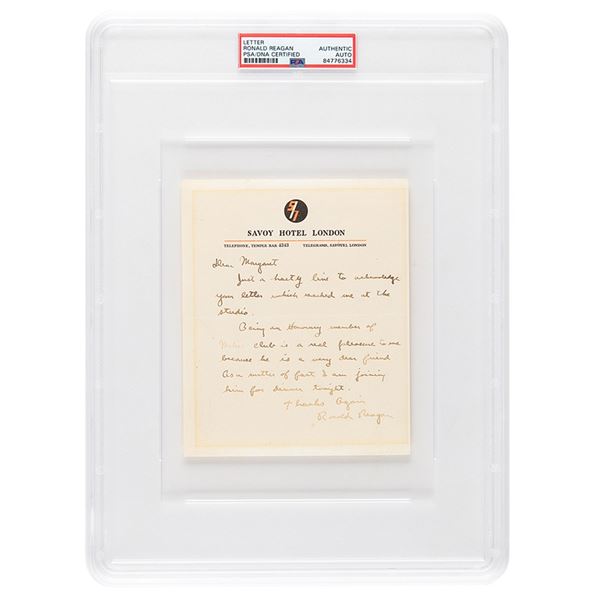 LETTER
RONALD REAGAN
PSA/DNA CERTIFIED
AUTHENTIC
AUTO
84776334
PSA
SAVOY HOTEL LONDON
TELEPHONE, TEMPLE BAR 4343 TELEGRAMS, SAVOTEL LONDON
Dear Margaret
Just a hasty line to acknowledge
your letter which reached me at the
studio.
Being an Honorary member of
club is a real pleasure to me
because he is a very dear friend
As a matter of fact I am joining
him for dinner tonight.
Thanks Again
Ronald Reagan